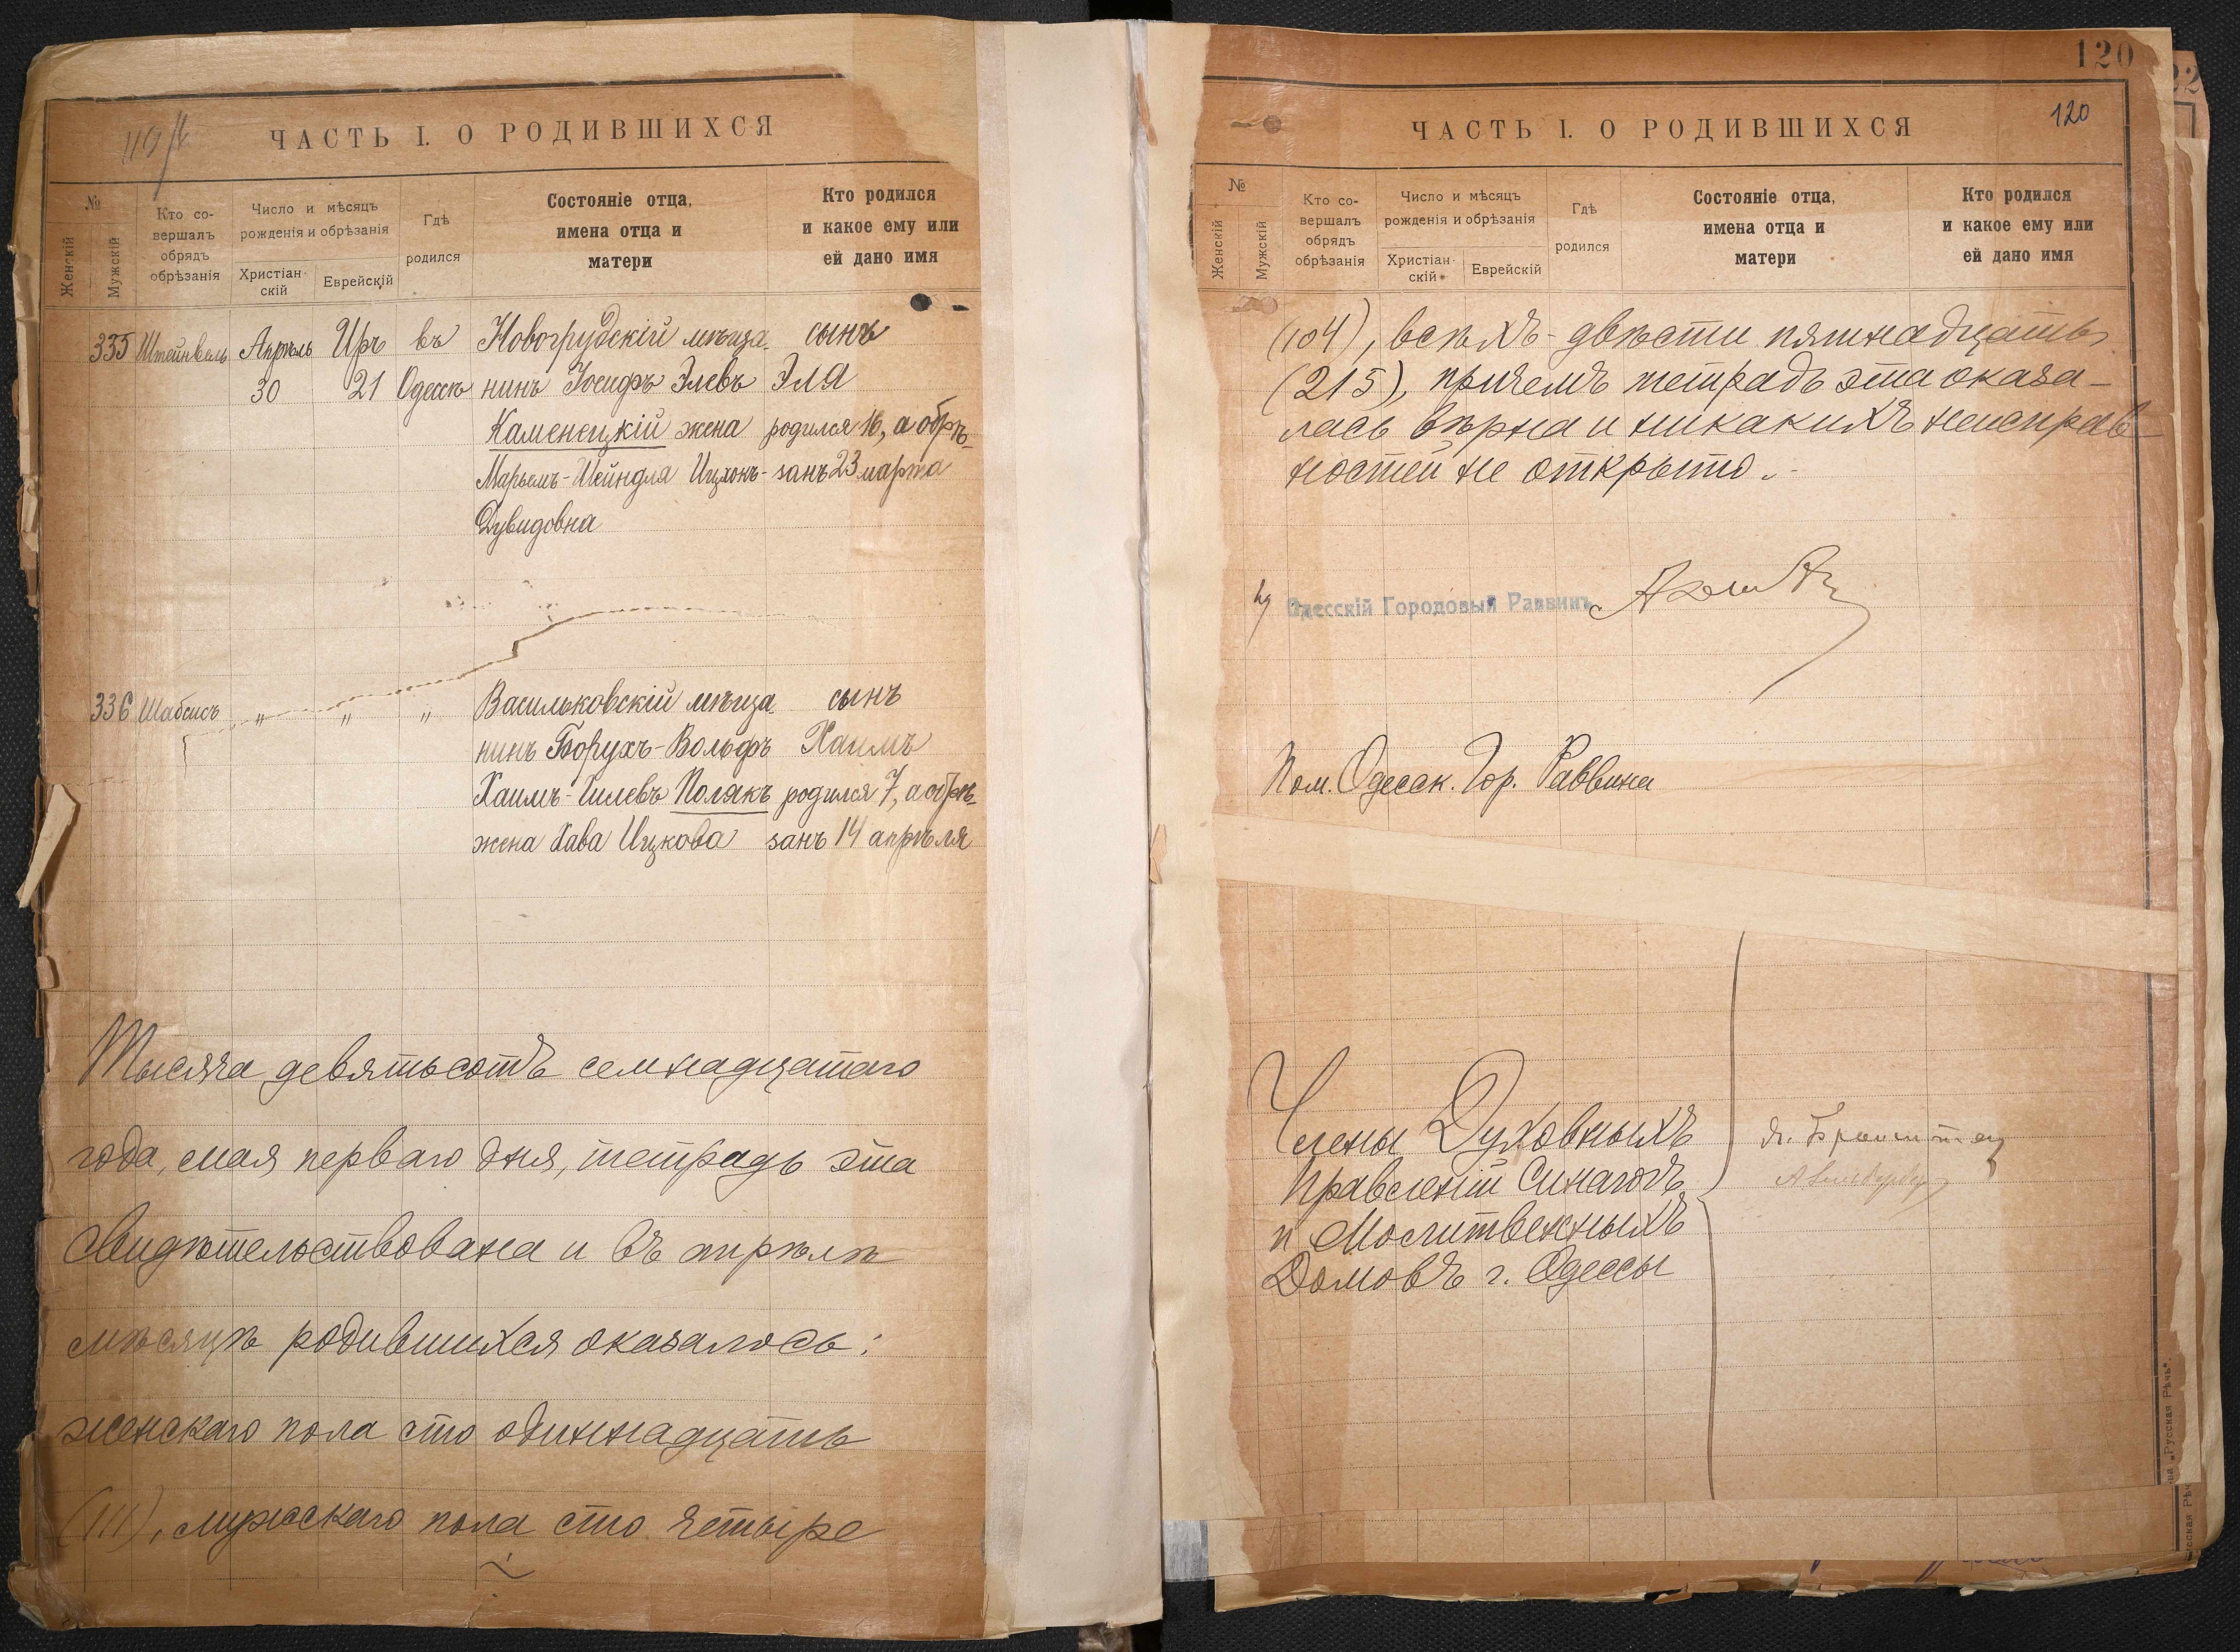 ЧАСТЬ I. О РОДИВШИХСЯ
№
Женскій
Мужскій
Кто со-
вершалъ
обрядъ
обрѣзанія
Число и мѣсяцъ
рожденія и обрѣзанія
Христіан-
скій
Еврейскій
Гдѣ
родился
Состояніе отца,
имена отца и
матери
Кто родился
и какое ему или
ей дано имя
335 Штейнвель Апрѣль Иръ въ Новогрудскій мѣща- сынъ
30 21 Одессѣ нинъ Іосифъ Элевъ Эля
Каменецкій жена родился 16, а обрѣ-
Марьемъ-Шейндля Ицхокъ- занъ 23 марта
Дувидовна
336 Шабсисъ " " " Васильковскій мѣща- сынъ
нинъ Борухъ-Вольфъ Хаимъ
Хаимъ-Гилевъ Полякъ родился 7, а обрѣ-
жена Хава Ицкова занъ 14 апрѣля
Тысяча девятьсотъ семнадцатаго
года, мая перваго дня, тетрадь эта
свидѣтельствована и въ апрѣлѣ
мѣсяцѣ родившихся оказалось:
женскаго пола сто одиннадцать
(111), мужскаго пола сто четыре
120
120
ЧАСТЬ I. О РОДИВШИХСЯ
№
Женскій
Мужскій
Кто со-
вершалъ
обрядъ
обрѣзанія
Число и мѣсяцъ
рожденія и обрѣзанія
Христіан-
скій
Еврейскій
Гдѣ
родился
Состояніе отца,
имена отца и
матери
Кто родился
и какое ему или
ей дано имя
(104), всѣхъ - двѣсти пятнадцать
(215), причемъ тетрадь эта оказа-
лась вѣрна и никакихъ неисправ-
ностей не открыто.
Одесскій Городовый Раввинъ
Пом. Одесск. Гор. Раввина
Члены Духовныхъ
Правленій Синагогъ
и Молитвенныхъ
Домовъ г. Одессы
„Русская Рѣчь".